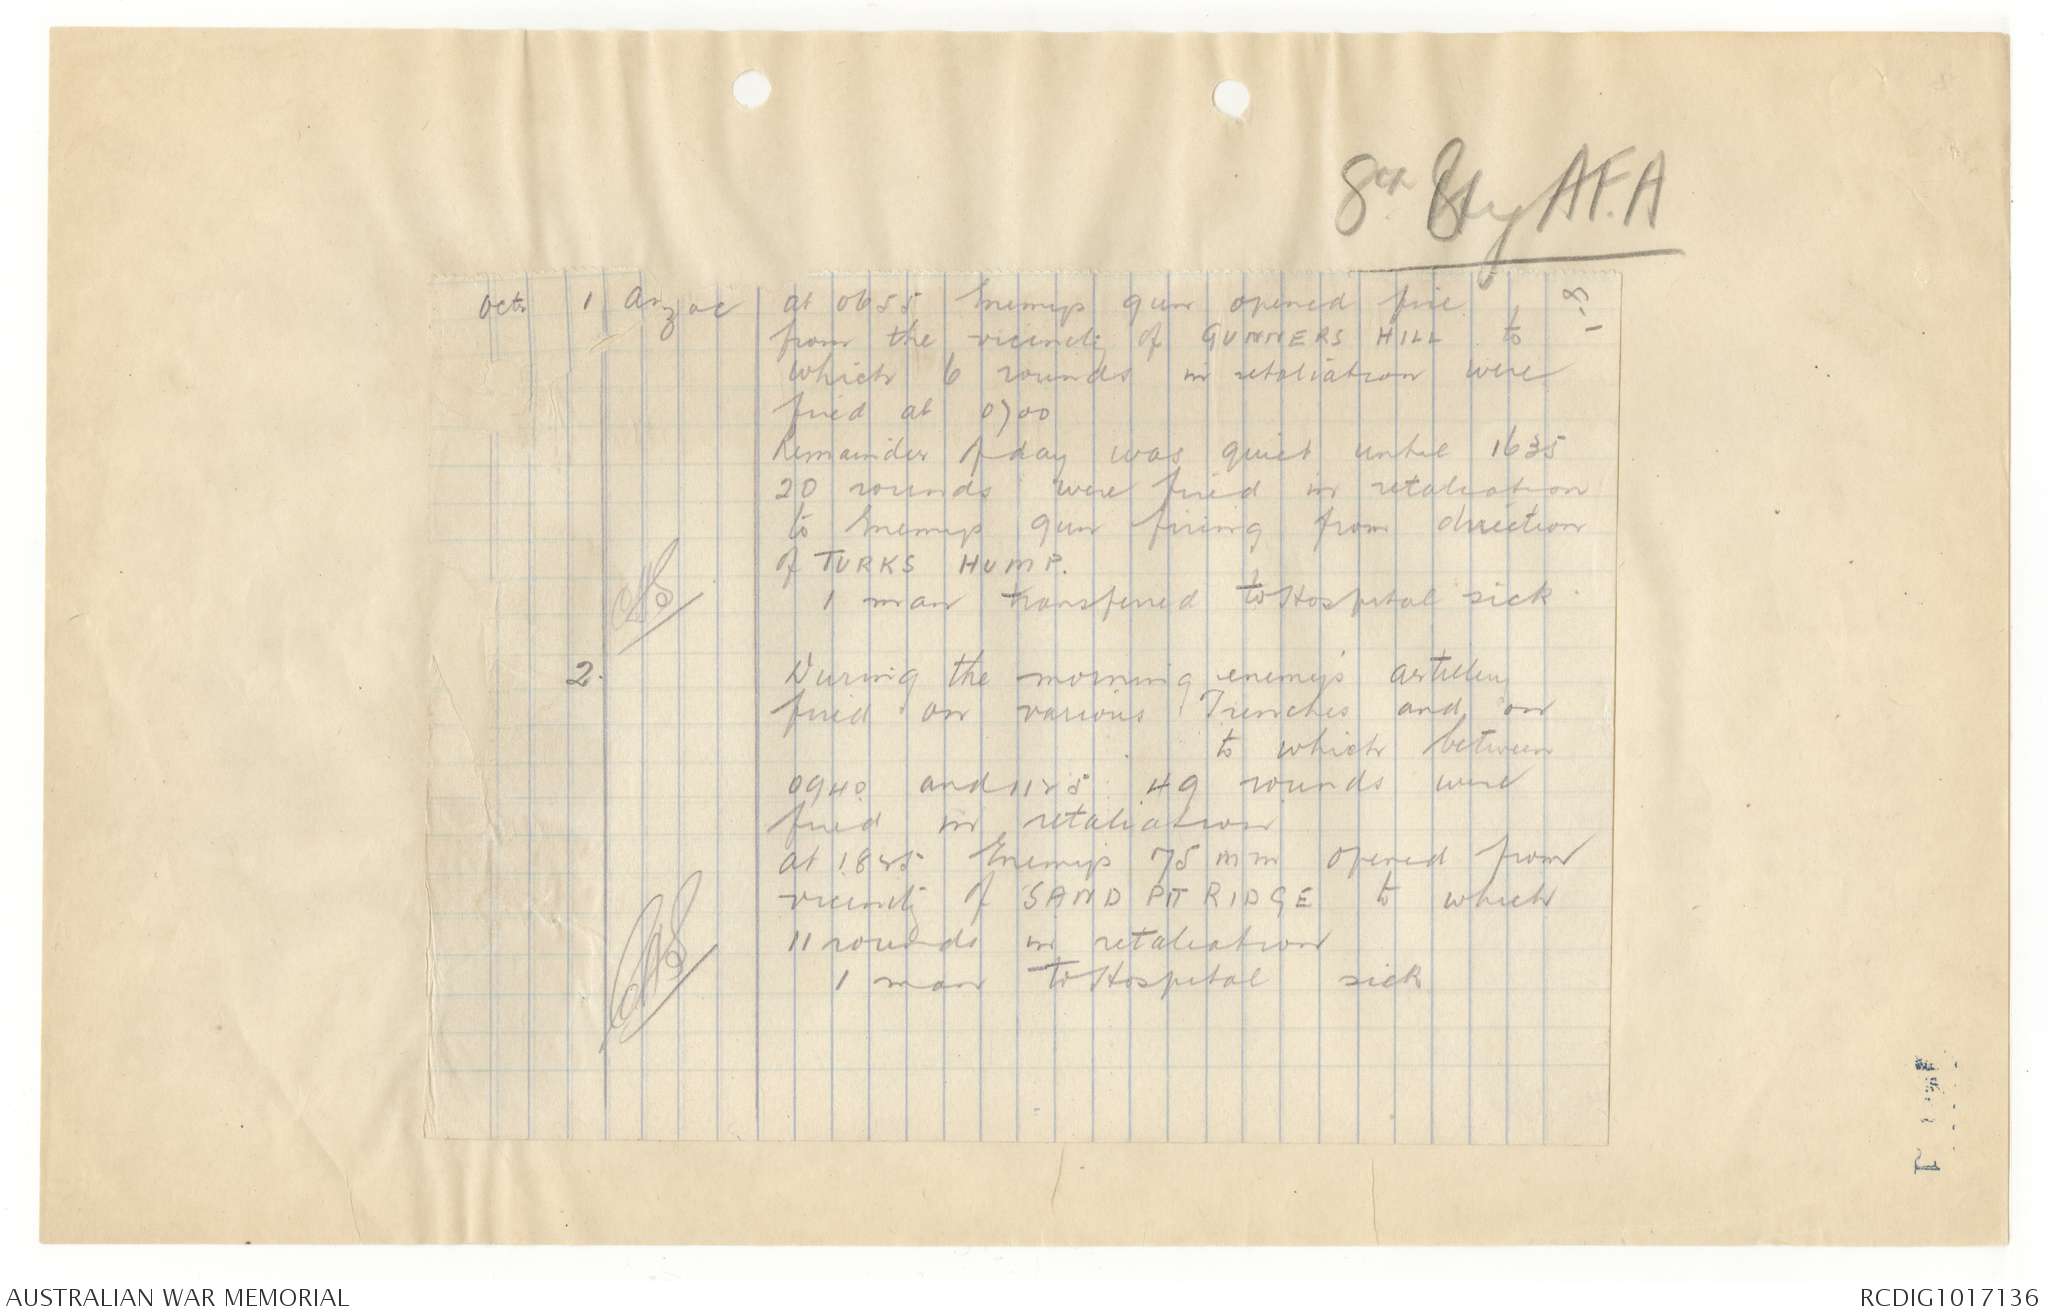 8th Bty A.F.A
8-1
Octr 1 Anzac at 0655 Enemys gun opened fire
from the vicinity of GUNNERS HILL to
which 6 rounds in retaliation were
fired at 0700
Remainder of day was quiet until 1635
20 rounds were fired in retaliation
to Enemys gun firing from direction
of TURKS HUMP.
1 man transferred to Hospital sick
2. During the morning enemy's artillery
fired on various Trenches and on
to which between
0940 and 1125 49 rounds were
fired in retaliation
at 1825 Enemy's 75 mm opened from
vicinity of SAND PIT RIDGE to which
11 rounds in retaliation
1 man to Hospital sick
AUSTRALIAN WAR MEMORIAL
RCDIG1017136